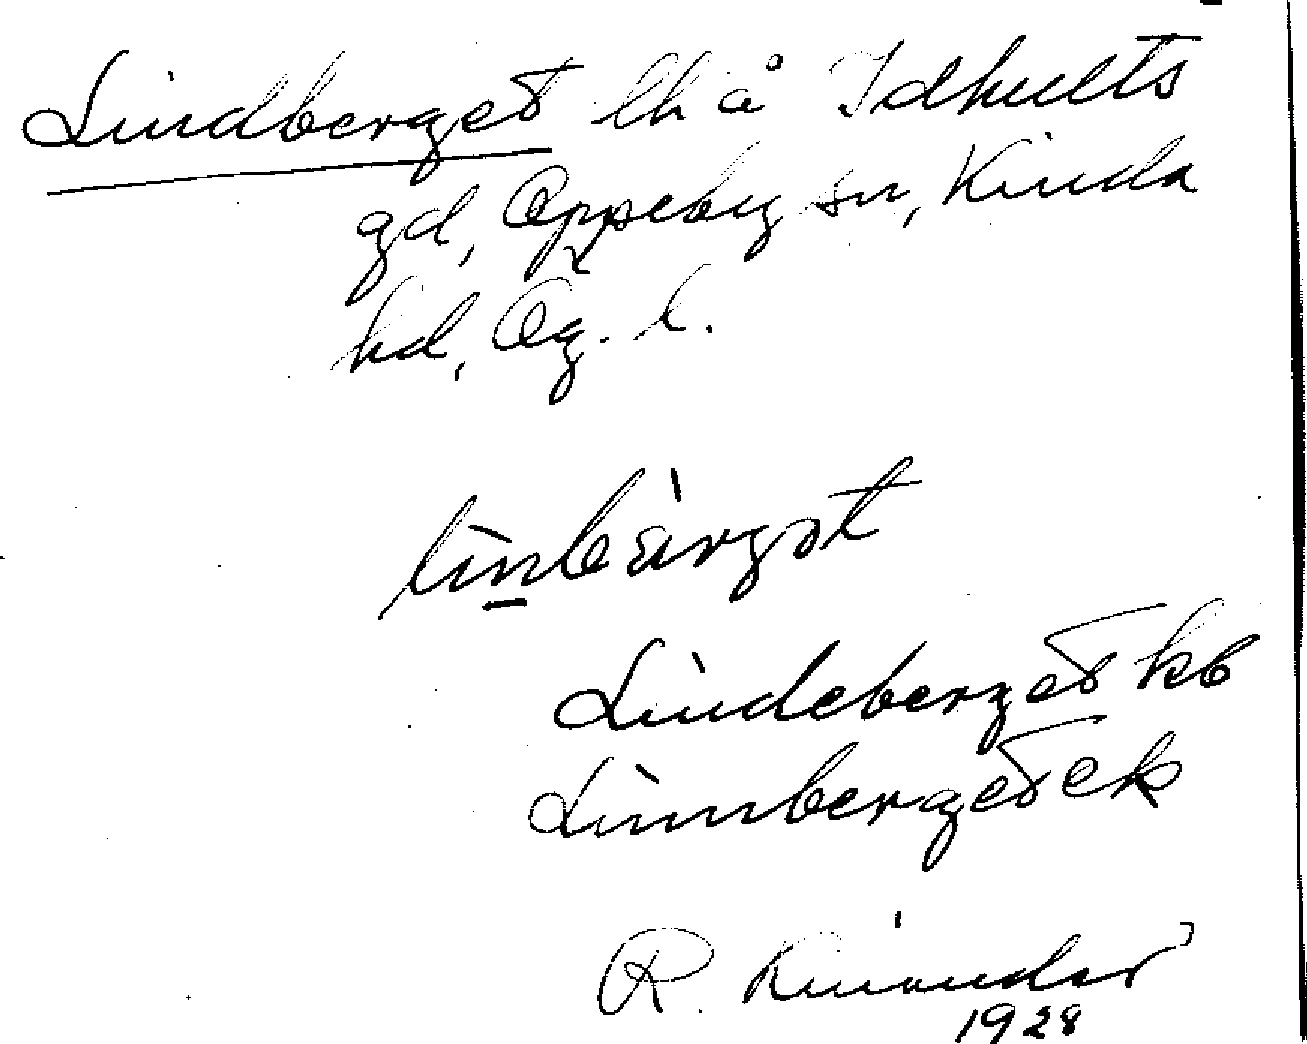 Lindberget lh å Idhults
gd, Oppeby sn, Kinda
hd, Ög. l.
linbärgət
Lindeberget kb
Linnberget ek
R. Kinander
1928